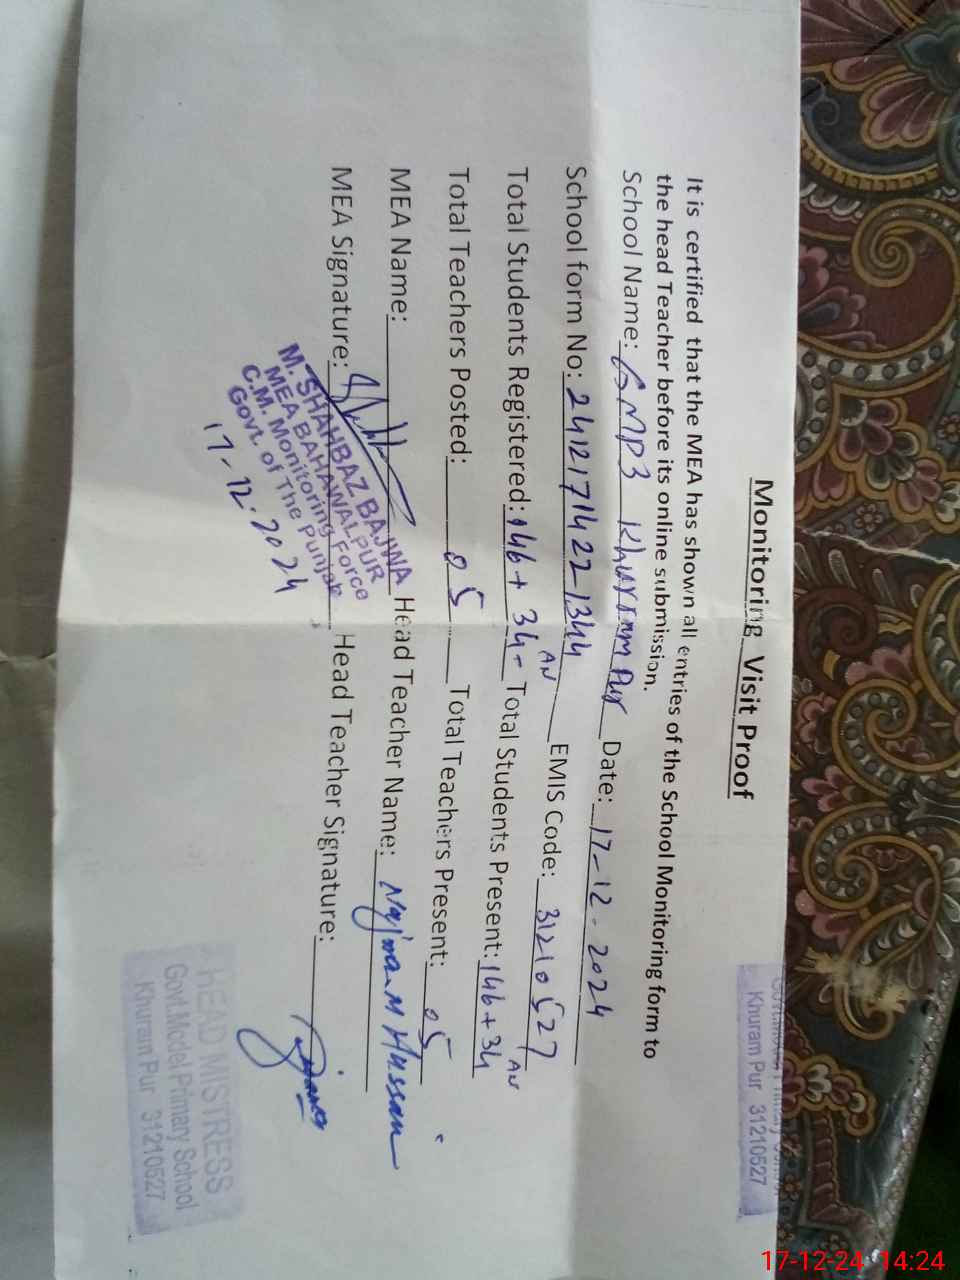 Monitoring Visit Proof
It is certified that the MEA has shown all entries of the School Monitoring form to
the head Teacher before its online submission.
School Name: GMPS Khurram Pur Date: 17-12-2024
School form No: 24121714221344 EMIS Code: 31210527
Total Students Registered: 146 + 34 AN Total Students Present: 146 + 34 AN
Total Teachers Posted: 05 Total Teachers Present: 05
MEA Name: Head Teacher Name: Najma M Hussan
MEA Signature: Head Teacher Signature:
M. SHAHBAZ BAJWA
MEA BAHAWALPUR
C.M. Monitoring Force
Govt. of The Punjab
17-12-2024
HEAD MISTRESS
Govt.Model Primary School
Khuram Pur 31210527
Khuram Pur 31210527
17-12-24 14:24